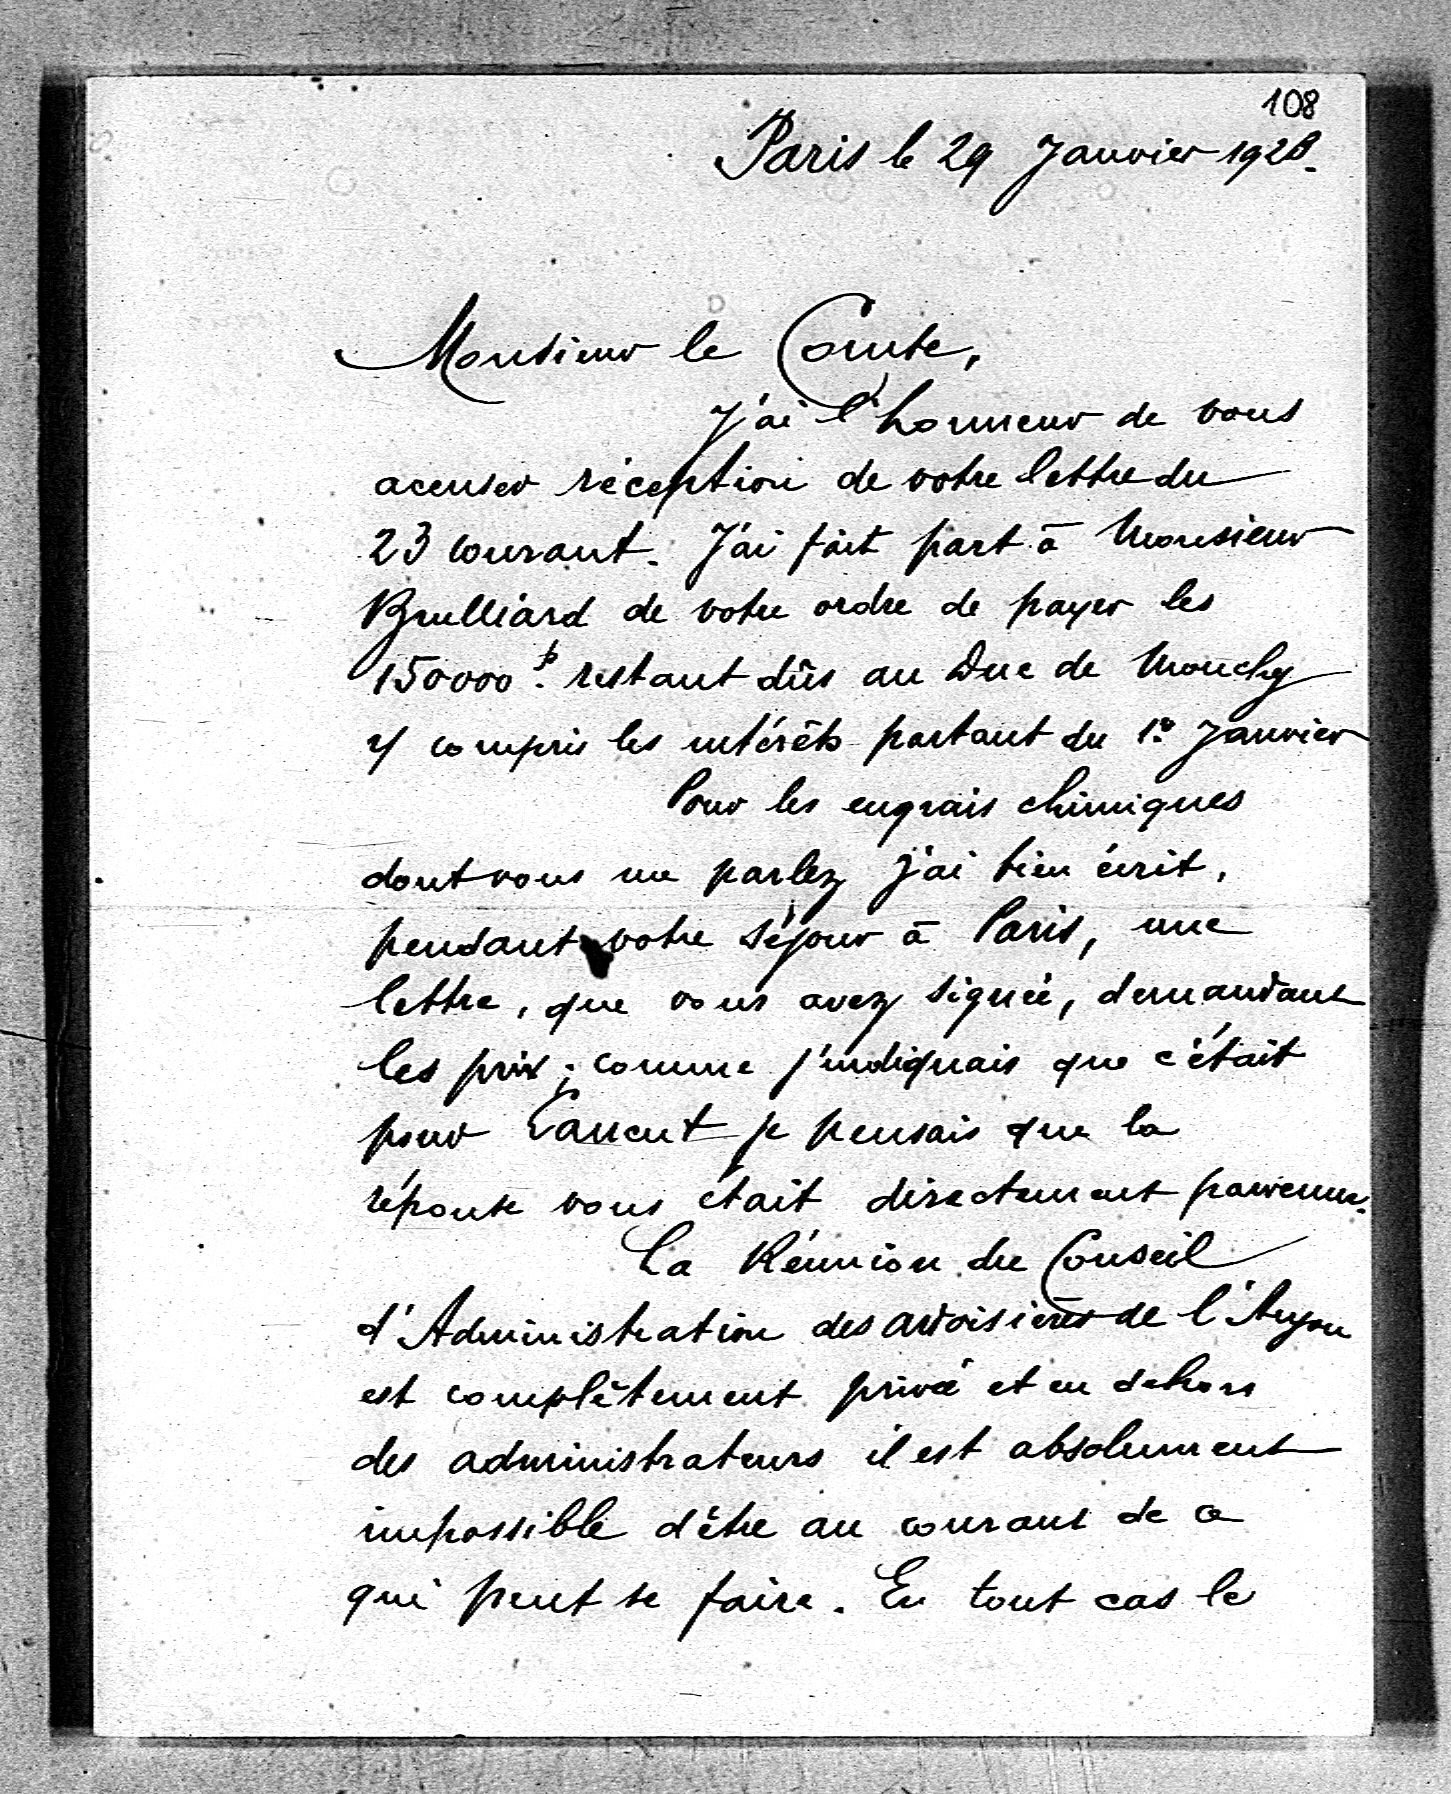 108
Paris le 29 Janvier 1928.
Monsieur le Comte,
J'ai l'honneur de vous
accuser réception de votre lettre du
23 courant. J'ai fait part à Monsieur
Brulliard de votre ordre de payer les
150000 f. restant dûs au Duc de Mouchy
y compris les intérêts partant du 1er Janvier
Pour les engrais chimiques
dont vous me parlez j'ai bien écrit,
pendant votre séjour à Paris, une
lettre, que vous avez signée, demandant
les prix ; comme j'indiquais que c'était
pour Lancut je pensais que la
réponse vous était directement parvenue.
La Réunion du Conseil
d'Administration des ardoisières de l'Anjou
est complètement privée et en dehors
des administrateurs il est absolument
impossible d'être au courant de ce
qui peut se faire. En tout cas le